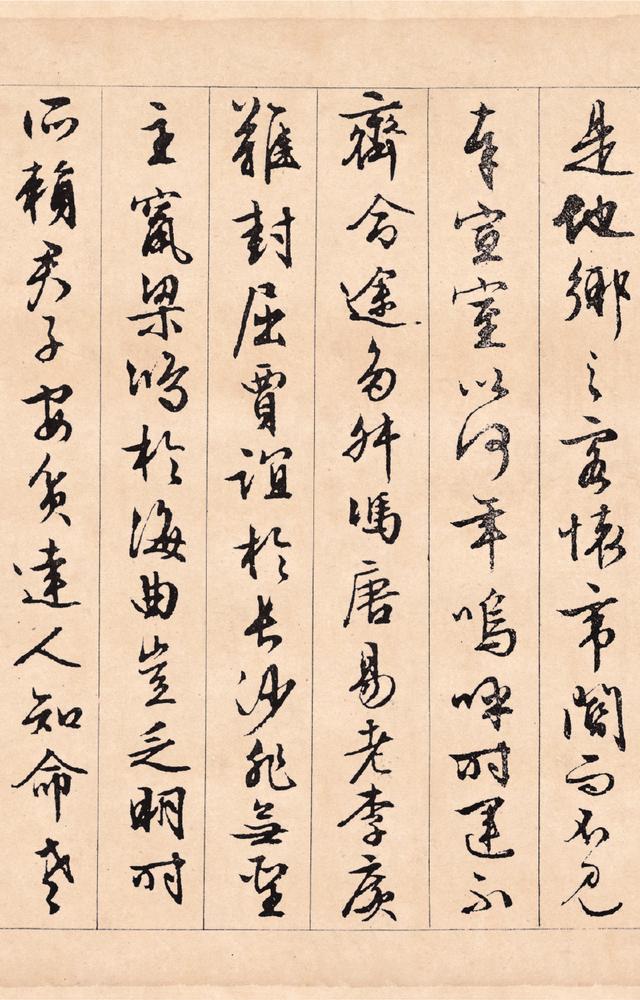 是他鄉之客懷帝閽而不見
奉宣室以何年嗚呼時運不
齊命途多舛馮唐易老李廣
難封屈賈誼於長沙非無聖
主竄梁鴻於海曲豈乏明時
所賴君子安貧達人知命老